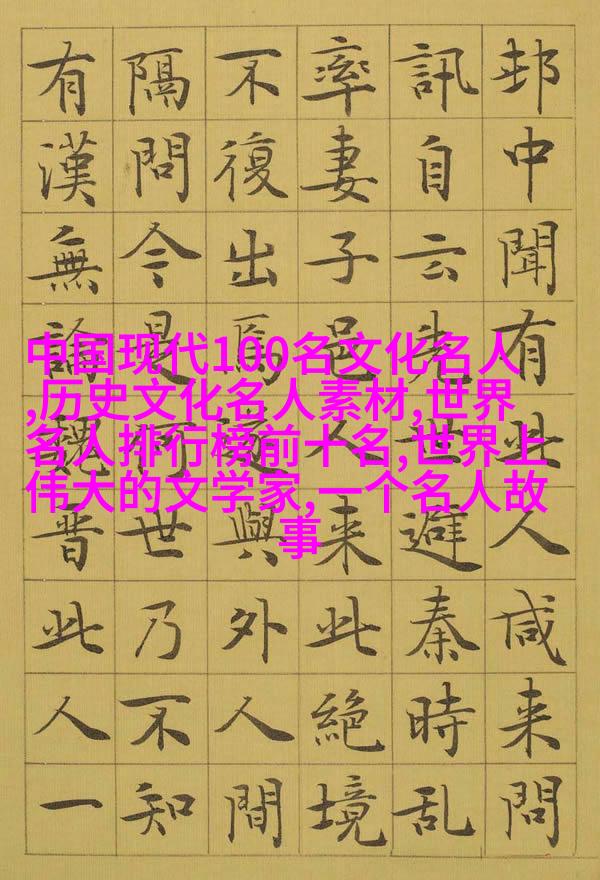 邨中聞有此人咸来問
訊自云先世避秦時亂
率妻子邑人来此絕境
不復出焉遂與外人間
隔問今是何世乃不知
有漢無論魏晋此人一
中国现代100名文化名人
,历史文化名人素材,世界
名人排行榜前十名,世界上
伟大的文学家,一个名人故
事